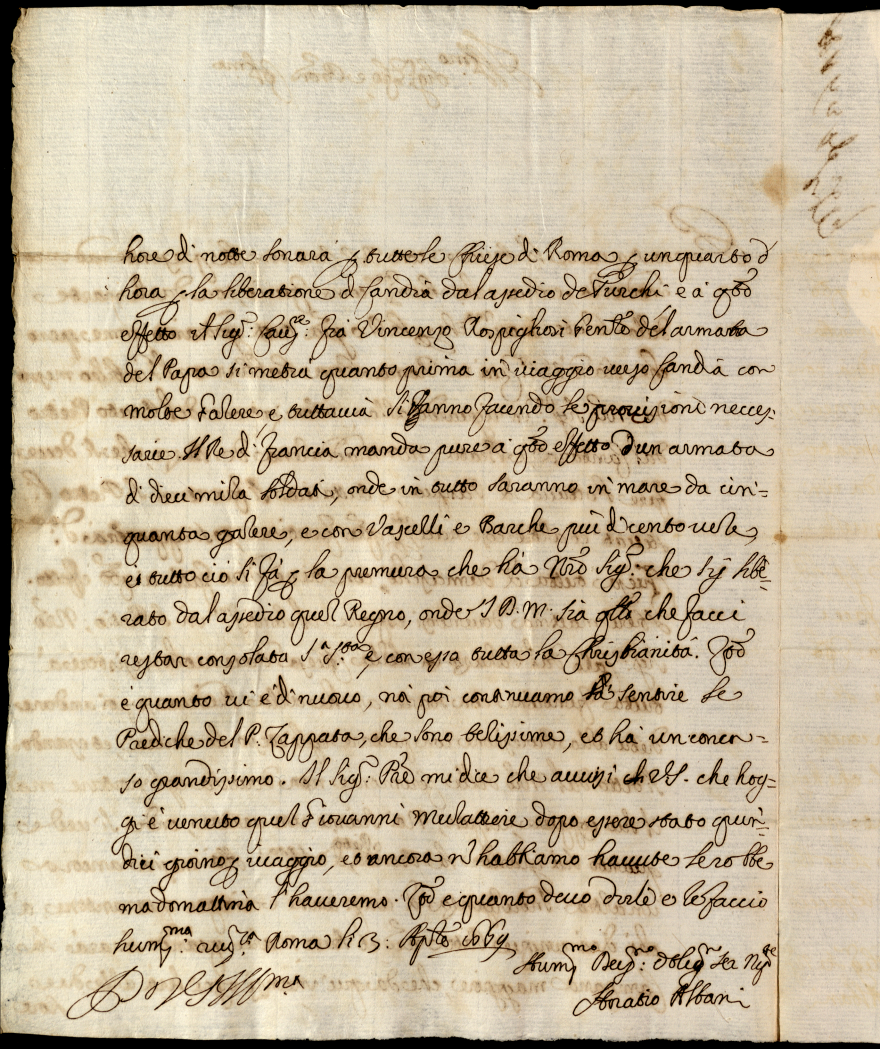 hore di notte sonarà p tutte le Chiese di Roma p un quarto d'
hora p la liberatione di Candia dal assedio de Turchi e a qsto
effetto il Sigr. Caur. Frà Vincenzo Rospigliosi Gentle del armata
del Papa si meterà quanto prima in viaggio verso Candia con
molte Galere, e tuttavia si stanno facendo le provisioni necces-
sarie. Il Re di Francia manda pure a qsto effetto d'un armata
di dieci mila soldati, onde in tutto saranno in mare da cin=
quanta galere, e con Vascelli e Barche più di cento vele,
et tutto ciò si fà p la premura che hà Nro Sigr. che sij libe=
rato dal assedio quel Regno, onde S. D. M. sia qllo che facci
restar consolata Sa. Stà, e con essa tutta la Christianità. Qsto
è quanto vi è di nuovo, noi poi continuamo à sentire le
Prediche del P. Zappata, che sono belissime, et hà un concor=
so grandissimo. Il Sigr. Pre mi dice che avvisi VS. che hog=
gi è venuto quel Giovanni Mulattiere dopo essere stato quin=
dici giorni p viaggio, et ancora n habbiamo havute le robbe
ma domattina l'haveremo. Qsto e quanto devo dirle e le faccio
humma. riza Roma li 3: Aple 1669
Di VS Illma
Hummo Devmo obligmo Ser Npte
Horatio Albani